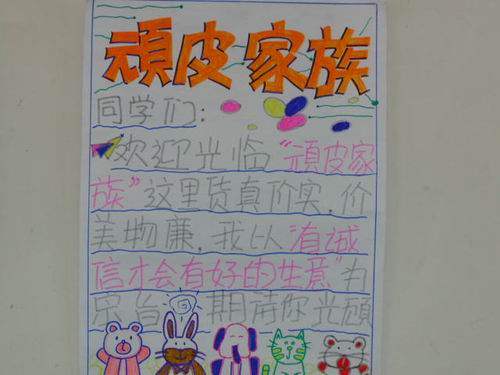 顽皮家族
同学们:
欢迎光临"顽皮家
族"这里货真价实,价
美物廉,我以"有诚
信才会有好的生意"为
宗旨 期待你光顾